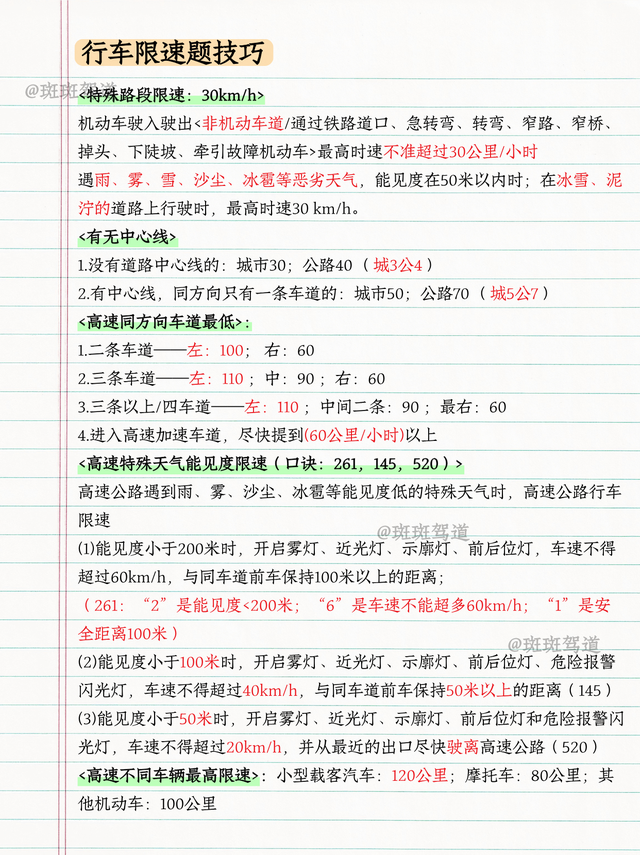 行车限速题技巧
@斑斑驾道
<特殊路段限速：30km/h>
机动车驶入驶出<非机动车道/通过铁路道口、急转弯、转弯、窄路、窄桥、
掉头、下陡坡、牵引故障机动车>最高时速不准超过30公里/小时
遇雨、雾、雪、沙尘、冰雹等恶劣天气，能见度在50米以内时；在冰雪、泥
泞的道路上行驶时，最高时速30 km/h。
<有无中心线>
1.没有道路中心线的：城市30；公路40（城3公4）
2.有中心线，同方向只有一条车道的：城市50；公路70（城5公7）
<高速同方向车道最低>：
1.二条车道——左：100； 右：60
2.三条车道——左：110 ；中：90 ；右：60
3.三条以上/四车道——左：110 ；中间二条：90 ；最右：60
4.进入高速加速车道，尽快提到(60公里/小时)以上
<高速特殊天气能见度限速（口诀：261，145，520）>
高速公路遇到雨、雾、沙尘、冰雹等能见度低的特殊天气时，高速公路行车
限速
@斑斑驾道
(1)能见度小于200米时，开启雾灯、近光灯、示廓灯、前后位灯，车速不得
超过60km/h，与同车道前车保持100米以上的距离；
（261：“2”是能见度<200米；“6”是车速不能超多60km/h；“1”是安
全距离100米）
@斑斑驾道
(2)能见度小于100米时，开启雾灯、近光灯、示廓灯、前后位灯、危险报警
闪光灯，车速不得超过40km/h，与同车道前车保持50米以上的距离（145）
(3)能见度小于50米时，开启雾灯、近光灯、示廓灯、前后位灯和危险报警闪
光灯，车速不得超过20km/h，并从最近的出口尽快驶离高速公路（520）
<高速不同车辆最高限速>：小型载客汽车：120公里；摩托车：80公里；其
他机动车：100公里